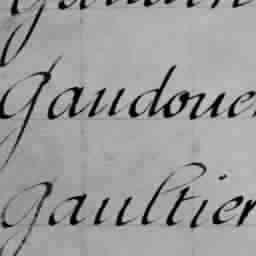 Gaudoue
Gaultier